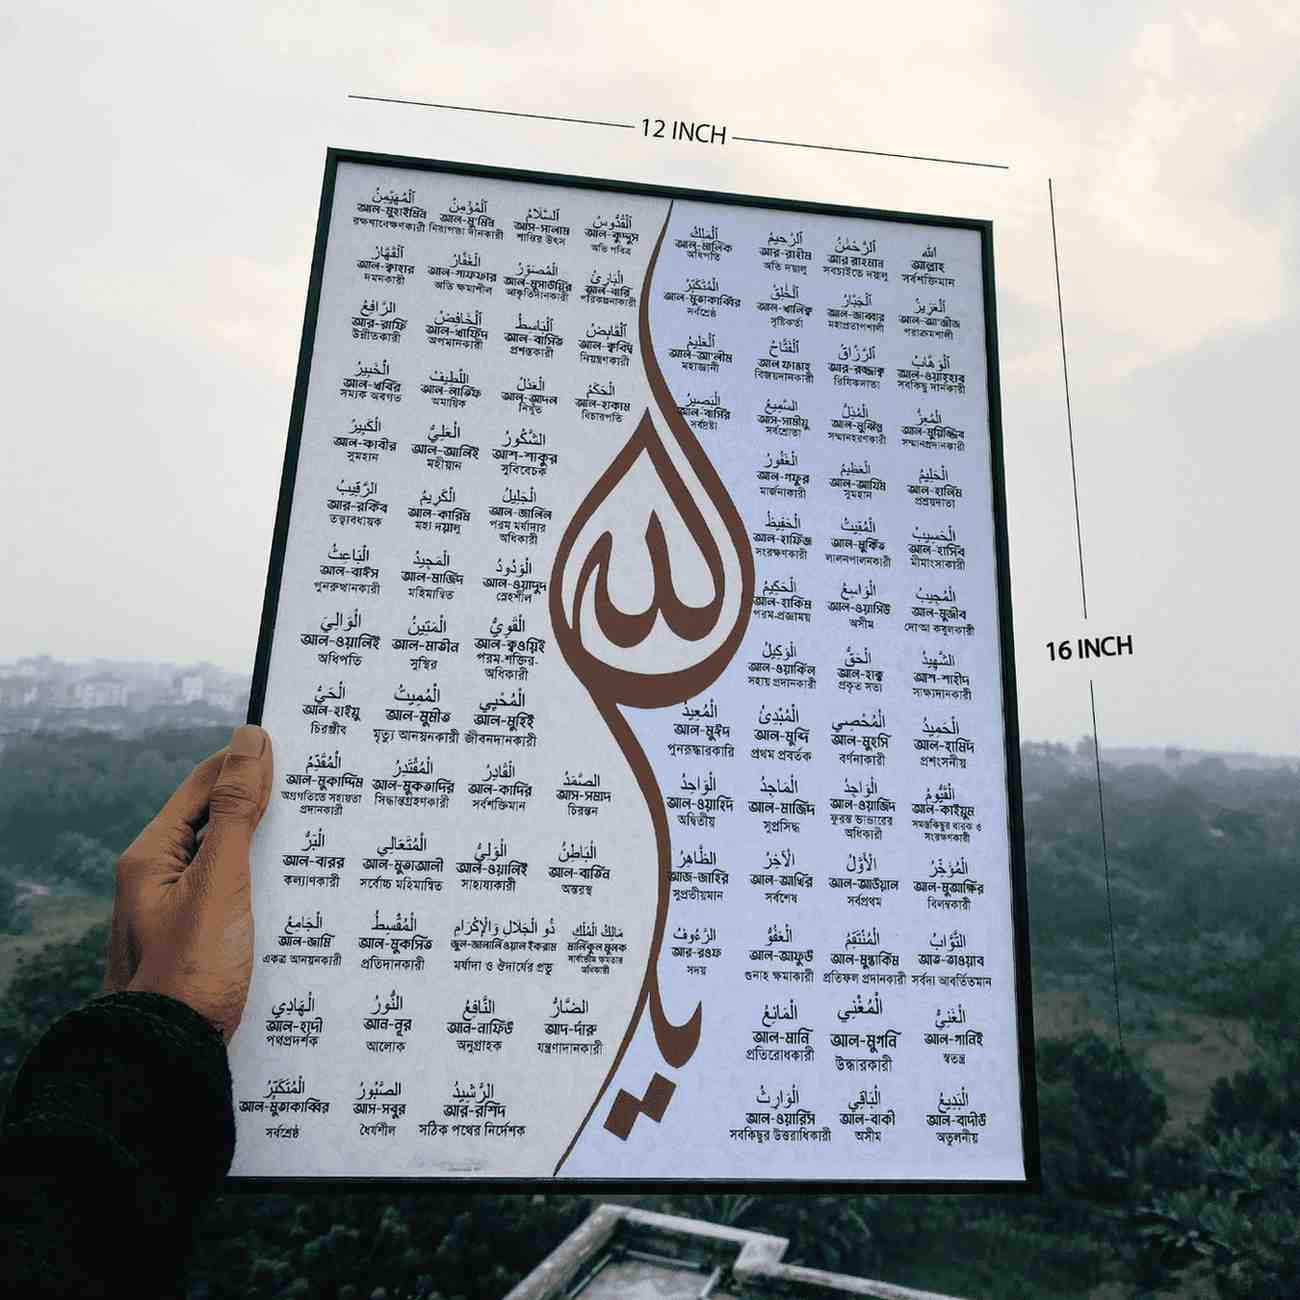 12 INCH
16 INCH
الله
আল্লাহ
সর্বশক্তিমান
اَلرَّحْمٰنُ
আর রাহমান
সবচাইতে দয়ালু
الرَّحِيمُ
আর-রাহীম
অতি দয়ালু
اَلْمَلِكُ
আল-মালিক
অধিপতি
اَلْقُدُّوسُ
আল-কুদ্দুস
অতি পবিত্র
اَلسَّلَامُ
আস-সালাম
শান্তির উৎস
اَلْمُؤْمِنُ
আল-মু'মিন
নিরাপত্তা দানকারী
اَلْمُهَيْمِنُ
আল-মুহাইমিন
রক্ষণাবেক্ষণকারী
اَلْعَزِيزُ
আল-আ'জীজ
পরাক্রমশালী
اَلْجَبَّارُ
আল-জাব্বার
মহাপ্রতাপশালী
আল-খালিক্ব
সৃষ্টিকর্তা
اَلْمُتَكَبِّرُ
আল-মুতাকাব্বির
সর্বশ্রেষ্ঠ
اَلْبَارِئُ
আল-বারি
পরিকল্পনাকারী
اَلْمُصَوِّرُ
আল-মুসাউয়ির
আকৃতিদানকারী
اَلْغَفَّارُ
আল-গাফফার
অতি ক্ষমাশীল
اَلْقَهَّارُ
আল-ক্বাহার
দমনকারী
اَلْوَهَّابُ
আল-ওয়াহ্হাব
সবকিছু দানকারী
اَلرَّزَّاقُ
আর-রজ্জাক্ব
রিযিকদাতা
اَلْفَتَّاحُ
আল ফাত্তাহ
বিজয়দানকারী
اَلْعَلِيمُ
আল-আ'লীম
মহাজ্ঞানী
اَلْقَابِضُ
আল-ক্ববিদ্ব
নিয়ন্ত্রণকারী
اَلْبَاسِطُ
আল-বাসিত
প্রশস্তকারী
اَلْخَافِضُ
আল-খাফিদ
অপমানকারী
اَلرَّافِعُ
আর-রাফি
উন্নীতকারী
اَلْمُعِزُّ
সম্মানপ্রদানকারী
اَلْمُذِلُّ
আল-মুঝিল্ল
সম্মানহরণকারী
السَّمِيعُ
আস-সামীয়ু
সর্বশ্রোতা
اَلْبَصِيرُ
আল-বাসির
সর্বদ্রষ্টা
اَلْحَكَمُ
আল-হাকাম
বিচারপতি
اَلْعَدْلُ
আল-আদল
নিখুঁত
اَللَّطِيفُ
আল-লাতিফ
অমায়িক
اَلْخَبِيرُ
আল-খবির
সম্যক অবগত
اَلْحَلِيمُ
আল-হালিম
প্রশ্রয়দাতা
اَلْعَظِيمُ
আল-আযিম
সুমহান
اَلْغَفُورُ
আল-গফুর
মার্জনাকারী
الشَّكُورُ
আশ-শাকুর
সুবিবেচক
اَلْعَلِيُّ
আল-আলিই
মহীয়ান
اَلْكَبِيرُ
আল-কাবীর
সুমহান
اَلْحَسِيبُ
আল-হাসিব
মীমাংসাকারী
اَلْمُقِيتُ
আল-মুকিত
লালনপালনকারী
اَلْحَفِيظُ
আল-হাফিজ
সংরক্ষণকারী
اَلْجَلِيلُ
আল-জালিল
পরম মর্যাদার
অধিকারী
اَلْكَرِيمُ
আল-কারিম
মহা দয়ালু
الرَّقِيبُ
আর-রকিব
তত্ত্বাবধায়ক
الْمُجِيبُ
আল-মুজীব
দো'আ কবুলকারী
اَلْوَاسِعُ
আল-ওয়াসিউ
অসীম
اَلْحَكِيمُ
আল-হাকিম
পরম-প্রজ্ঞাময়
اَلْوَدُودُ
আল-ওয়াদুদ
স্নেহশীল
اَلْمَجِيدُ
আল-মাজিদ
মহিমান্বিত
اَلْبَاعِثُ
আল-বাইস
পুনরুত্থানকারী
الشَّهِيدُ
আশ-শাহীদ
সাক্ষ্যদানকারী
الْحَقُّ
আল-হাক্ব
প্রকৃত সত্য
اَلْوَكِيلُ
আল-ওয়াকিল
সহায় প্রদানকারী
اَلْقَوِيُّ
আল-ক্বওয়িই
পরম-শক্তির-
অধিকারী
اَلْمَتِينُ
আল-মাতীন
সুস্থির
اَلْوَالِيَ
আল-ওয়ালিই
অধিপতি
اَلْحَمِيدُ
আল-হামিদ
প্রশংসনীয়
اَلْمُحْصِي
আল-মুহসি
বর্ণনাকারী
الْمُبْدِئُ
আল-মুব্দি
প্রথম প্রবর্তক
اَلْمُعِيدُ
আল-মুঈদ
পুনরূদ্ধারকারি
الْمُحْيِي
আল-মুহিই
জীবনদানকারী
الْمُمِيتُ
আল-মুমীত
মৃত্যু আনয়নকারী
الْحَيُّ
আল-হাইয়ু
চিরঞ্জীব
الْقَيُّومُ
আল-কাইয়ুম
সমস্তকিছুর ধারক ও
সংরক্ষণকারী
الْوَاجِدُ
আল-ওয়াজিদ
অধিকারী
اَلْمَاجِدُ
আল-মাজিদ
সুপ্রসিদ্ধ
اَلْوَاحِدُ
আল-ওয়াহিদ
অদ্বিতীয়
الصَّمَدُ
আস-সমাদ
চিরন্তন
الْقَادِرُ
আল-কাদির
সর্বশক্তিমান
الْمُقْتَدِرُ
আল-মুকতাদির
সিদ্ধান্তগ্রহণকারী
الْمُقَدِّمُ
আল-মুকাদ্দিম
অগ্রগতিতে সহায়তা
প্রদানকারী
الْمُؤَخِّرُ
আল-মুআক্ষির
বিলম্বকারী
الْأَوَّلُ
আল-আউয়াল
সর্বপ্রথম
الْآخِرُ
আল-আখির
সর্বশেষ
الظَّاهِرُ
আজ-জাহির
সুপ্রতীয়মান
الْبَاطِنُ
আল-বাতিন
অন্তরস্থ
الْوَلِيُّ
আল-ওয়ালিই
সাহায্যকারী
الْمُتَعَالِي
আল-মুতাআলী
সর্বোচ্চ মহিমান্বিত
الْبَرُّ
আল-বারর
কল্যাণকারী
التَّوَّابُ
আত-তাওয়াব
সর্বদা আবর্তিতমান
الْمُنْتَقِمُ
আল-মুন্তাকিম
প্রতিফল প্রদানকারী
الْعَفُوُّ
আল-আফুউ
গুনাহ ক্ষমাকারী
الرَّءُوفُ
আর-রওফ
সদয়
مَالِكُ الْمُلْكِ
মালিকুল মুলক
ذُو الْجَلَالِ وَالْإِكْرَامِ
জুল-জালালি ওয়াল ইকরাম
মর্যাদা ও ঔদার্যের প্রভু
الْمُقْسِطُ
আল-মুকসিত
প্রতিদানকারী
الْجَامِعُ
আল-জামি
একত্র আনয়নকারী
الْغَنِيُّ
আল-গানিই
স্বতন্ত্র
الْمُغْنِي
আল-মুগনি
উদ্ধারকারী
الْمَانِعُ
আল-মানি
প্রতিরোধকারী
الضَّارُّ
আদ-দারু
যন্ত্রণাদানকারী
النَّافِعُ
আন-নাফিউ
অনুগ্রাহক
النُّورُ
আন-নূর
আলোক
الْهَادِي
আল-হাদী
পথপ্রদর্শক
الْبَدِيعُ
আল-বাদীউ
অতুলনীয়
الْبَاقِي
আল-বাকী
অসীম
الْوَارِثُ
আল-ওয়ারিস
সবকিছুর উত্তরাধিকারী
الرَّشِيدُ
আর-রশিদ
সঠিক পথের নির্দেশক
الصَّبُورُ
আস-সবুর
ধৈর্যশীল
الْمُتَكَبِّرُ
আল-মুতাকাব্বির
সর্বশ্রেষ্ঠ